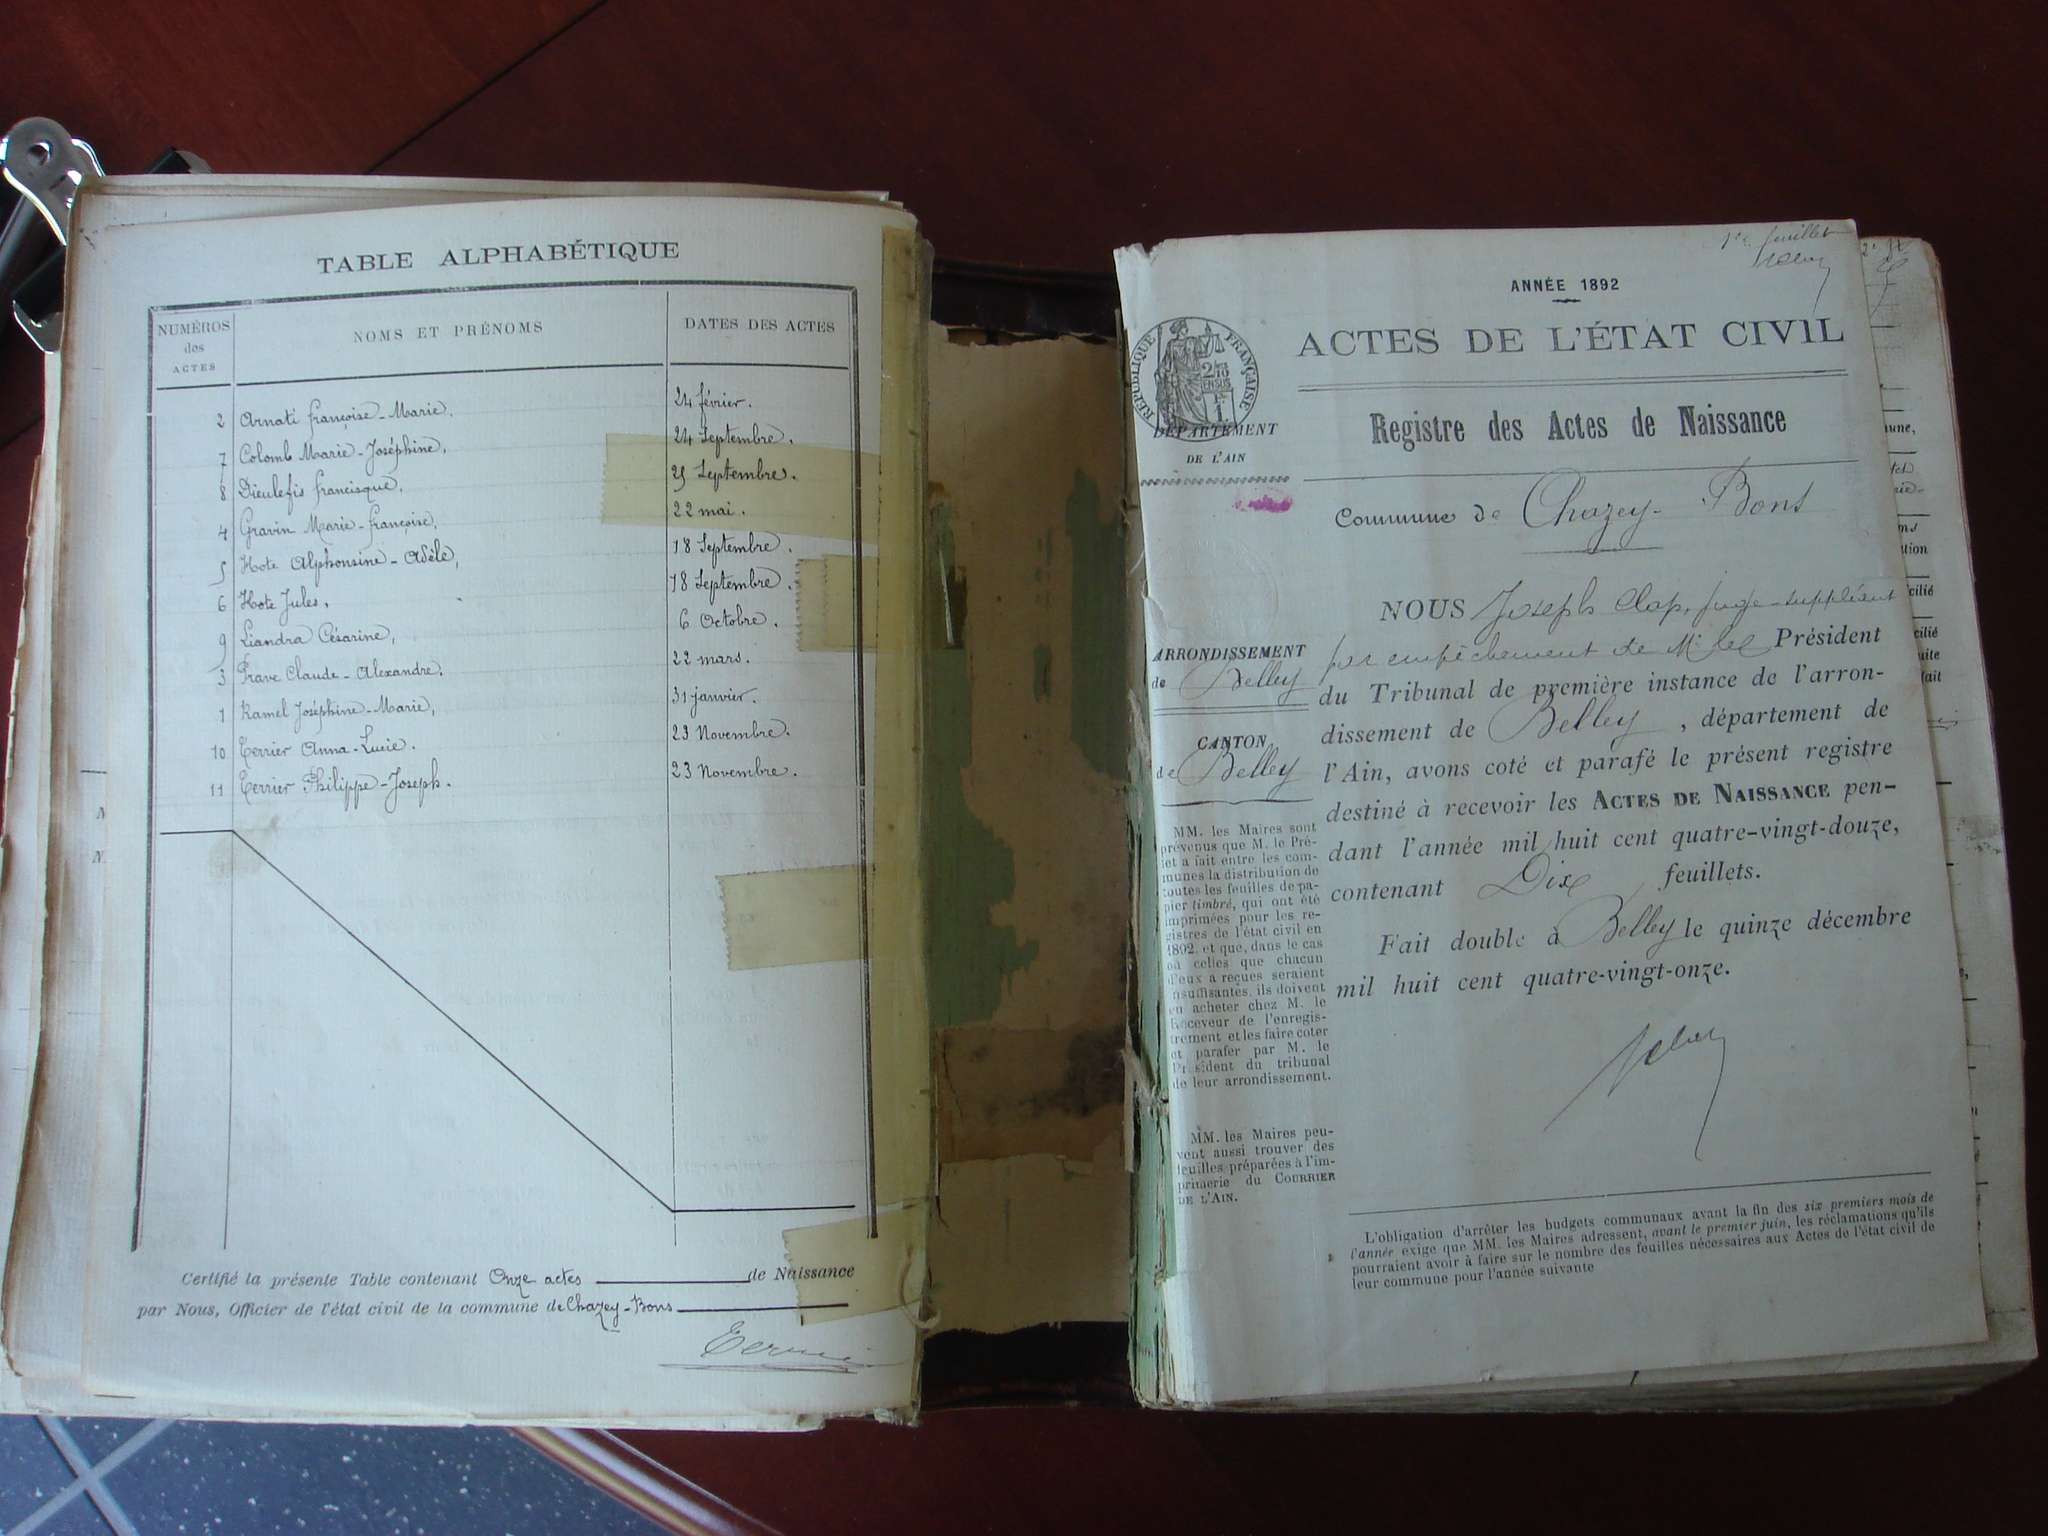 TABLE ALPHABÉTIQUE
NUMÉROS des ACTES
NOMS ET PRÉNOMS
DATES DES ACTES
2 Arnati françoise-Marie, 24 février.
7 Colomb Marie-Joséphine, 24 Septembre.
8 Dieulefis francisque, 25 Septembre.
4 Gravin Marie-françoise, 22 mai.
5 Hote Alphonsine-Adèle, 18 Septembre.
6 Hote Jules, 18 Septembre.
9 Liandra Césarine, 6 Octobre.
3 Prave Claude-Alexandre. 22 mars.
1 Ramel Joséphine-Marie, 31 janvier.
10 Terrier Anna-Lucie. 23 Novembre.
11 Terrier Philippe-Joseph. 23 Novembre.
Certifié la présente Table contenant Onze actes de Naissance
par Nous, Officier de l'état civil de la commune de Chazey-Bons
1er feuillet
ANNÉE 1892
ACTES DE L'ÉTAT CIVIL
RÉPUBLIQUE FRANÇAISE
2/10 EN SUS
1 F.
DÉPARTEMENT
DE L'AIN
Registre des Actes de Naissance
Commune de Chazey-Bons
ARRONDISSEMENT
de Belley
CANTON
de Belley
MM. les Maires sont
prévenus que M. le Pré-
fet a fait entre les com-
munes la distribution de
toutes les feuilles de pa-
pier timbré, qui ont été
imprimées pour les re-
gistres de l'état civil en
1892, et que, dans le cas
où celles que chacun
d'eux a reçues seraient
insuffisantes, ils doivent
en acheter chez M. le
Receveur de l'enregis-
trement et les faire coter
et parafer par M. le
Président du tribunal
de leur arrondissement.
MM. les Maires peu-
vent aussi trouver des
feuilles préparées à l'im-
primerie du COURRIER
DE L'AIN.
NOUS Joseph Clap, juge-suppléant
par empêchement de Mr le Président
du Tribunal de première instance de l'arron-
dissement de Belley, département de
l'Ain, avons coté et parafé le présent registre
destiné à recevoir les ACTES DE NAISSANCE pen-
dant l'année mil huit cent quatre-vingt-douze,
contenant Dix feuillets.
Fait double à Belley le quinze décembre
mil huit cent quatre-vingt-onze.
L'obligation d'arrêter les budgets communaux avant la fin des six premiers mois de
l'année exige que MM. les Maires adressent, avant le premier juin, les réclamations qu'ils
pourraient avoir à faire sur le nombre des feuilles nécessaires aux Actes de l'état civil de
leur commune pour l'année suivante